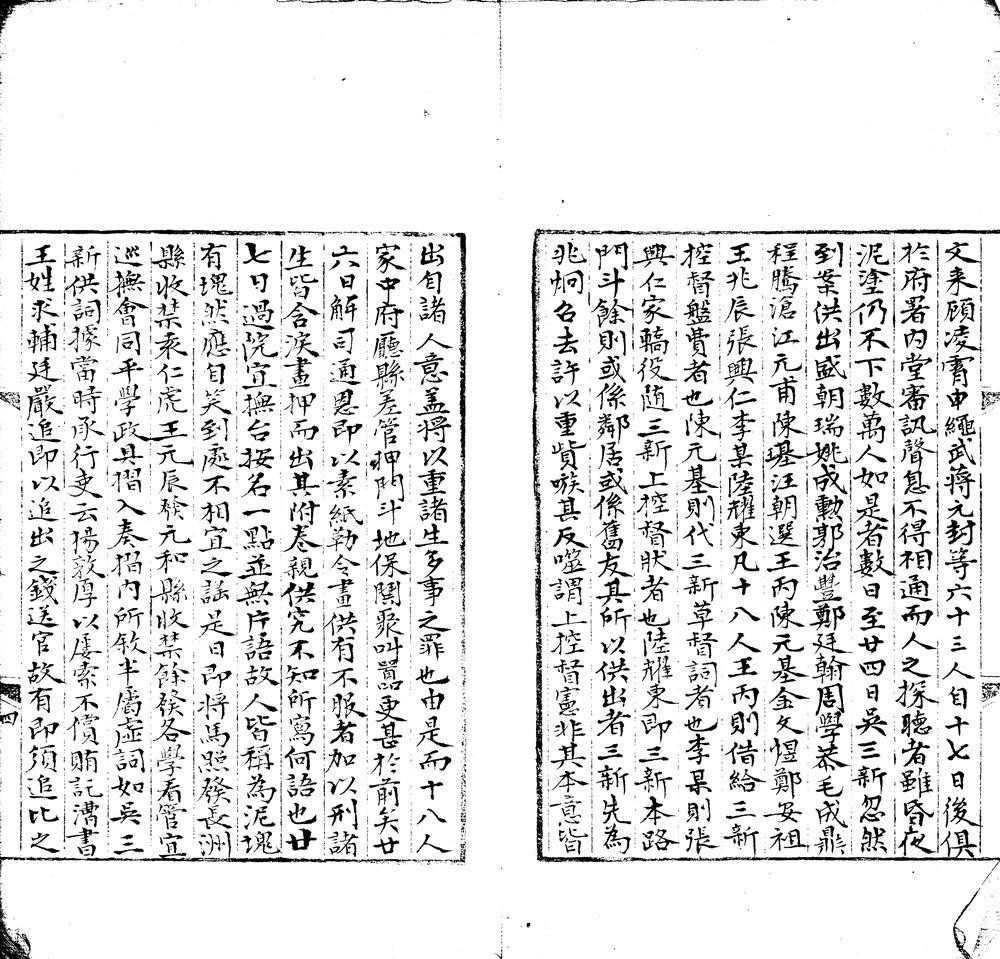 文来顧凌霄申繩武蔣元封等六十三人自十七日後俱
於府署内堂審訊聲息不得相通而人之探聽者雖昏夜
泥塗仍不下數萬人如是者數日至廿四日吳三新忽然
到案供出盛朝瑞姚成勳郭治豐鄭廷翰周學恭毛成鼎
程騰滄江元甫陳璂汪朝選王丙陳元基金文煜鄭安祖
王兆辰張興仁李杲陸耀東凡十八人王丙則借給三新
控督盤費者也陳元基則代三新草督詞者也李杲則張
興仁家轎役随三新上控督狀者也陸耀東即三新本路
門斗餘則或係鄰居或係舊友其所以供出者三新先為
兆炯召去許以重貲嗾其反噬謂上控督憲非其本意皆
出自諸人意盖将以重諸生多事之罪也由是而十八人
家中府廳縣差管押門斗地保鬧聚叫囂更甚於前矣廿
六日解司通恩即以素紙勒令畫供有不服者加以刑諸
生皆含淚畫押而出其附卷親供究不知所寫何語也廿
七日過院宜撫台按名一點並無片語故人皆稱為泥塊
有塊然應自笑到處不相宜之謡是日即將馬照發長洲
縣收禁乘仁虎王元辰發元和縣收禁餘發各學看管宜
巡撫會同平學政具摺入奏摺内所敘半屬虛詞如吳三
新供詞據當時承行吏云揚敦厚以屢索不償賄託漕書
王姓求輔廷嚴追即以追出之錢送官故有即須追比之